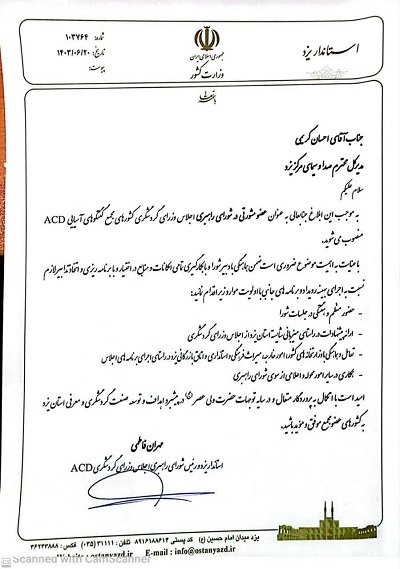 استاندار یزد
جمهوری اسلامی ایران
وزارت کشور
شماره: ۱۰۳۷۶۴
تاریخ: ۱۴۰۳/۰۶/۲۰
پیوست:
جناب آقای احسان کرمی
مدیرکل محترم صدا و سیمای مرکز یزد
سلام علیکم
به موجب این ابلاغ جنابعالی به عنوان عضو مشورتی در شورای راهبری اجلاس وزرای گردشگری کشورهای مجمع گفتگوهای آسیایی ACD
منصوب می شوید.
با عنایت به اهمیت موضوع ضروری است ضمن هماهنگی با دبیر شورا و با بکارگیری تمامی امکانات و منابع در اختیار و با برنامه ریزی و اتخاذ تدابیر لازم
نسبت به اجرای بهینه رویداد و برنامه های جانبی با اولویت موارد زیر اقدام نمائید:
- حضور منظم و همیشگی در جلسات شورا
- ارائه پیشنهادات در راستای میزبانی شایسته استان یزد از اجلاس وزرای گردشگری
- تعامل و هماهنگی با وزارتخانه های کشور، امور خارجه، میراث فرهنگی و استانداری و اتاق بازرگانی یزد در راستای اجرای برنامه های اجلاس
- همکاری در سایر امور محوله و اعلامی از سوی شورای راهبری
امید است با اتکال به پروردگار متعال و در سایه توجهات حضرت ولی عصر (عج) در پیشبرد اهداف و توسعه صنعت گردشگری و معرفی استان یزد
به کشورهای عضو مجمع موفق و موید باشید.
مهران فاطمی
استاندار یزد و رئیس شورای راهبری اجلاس وزرای گردشگری ACD
یزد میدان امام حسین (ع) کد پستی ۸۹۱۶۱۸۸۶۱۴ تلفن: ۳۱۱۱۱ (۰۳۵) فکس: ۳۶۲۴۳۸۸۸
Website: ostanyazd.ir E-mail : info@ostanyazd.ir
Scanned with CamScanner